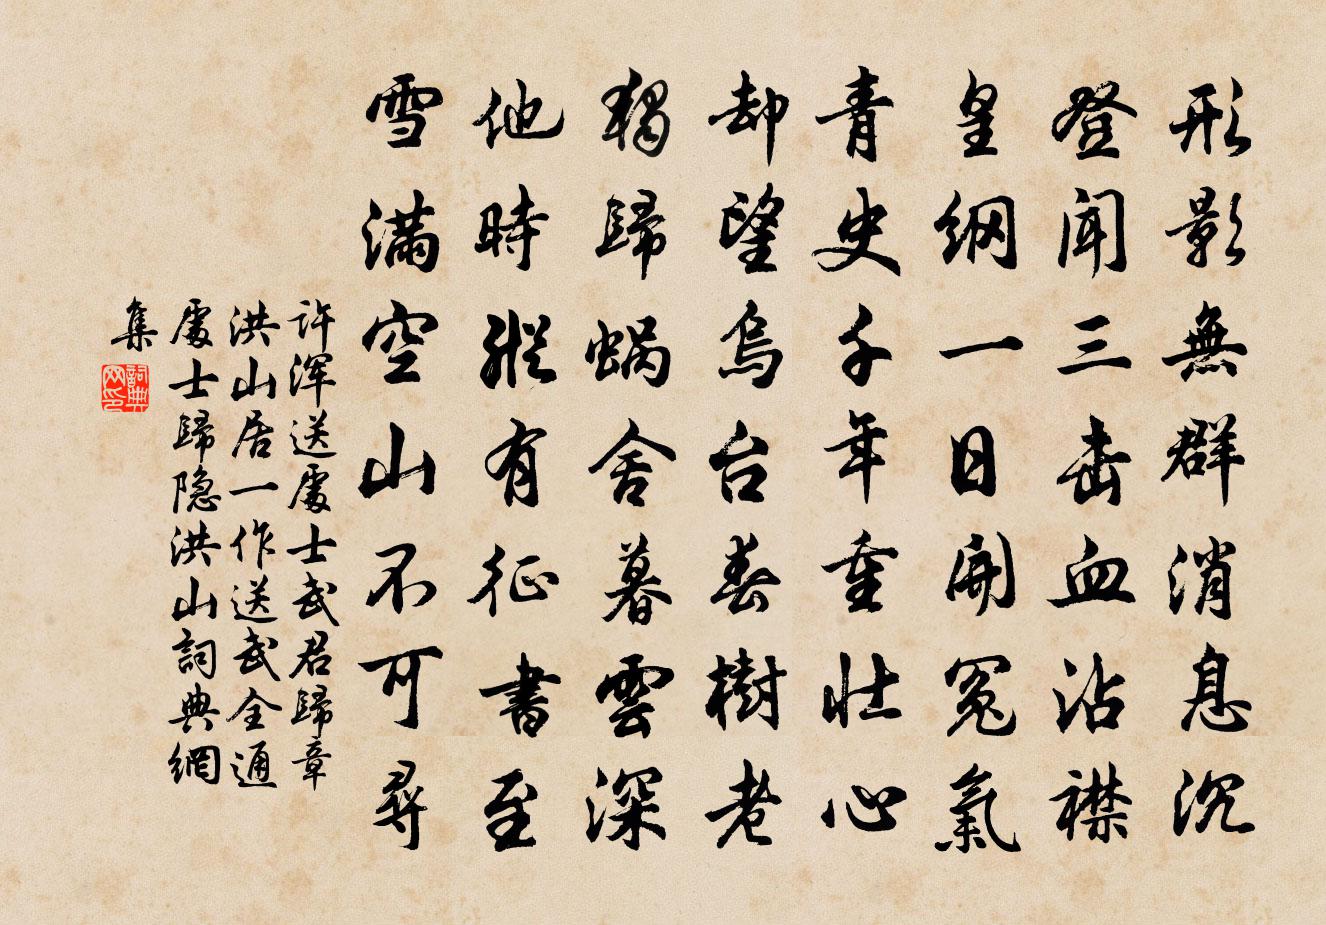 形影無群消息沉
登聞三击血沾襟
皇綱一日開冤氣
青史千年重壮心
却望烏台春樹老
獨歸蝸舍暮雲深
他時縱有征書至
雪满空山不可尋
許渾送處士武君歸章
洪山居一作送武全通
處士歸隐洪山詞典網
集
詞典
网印